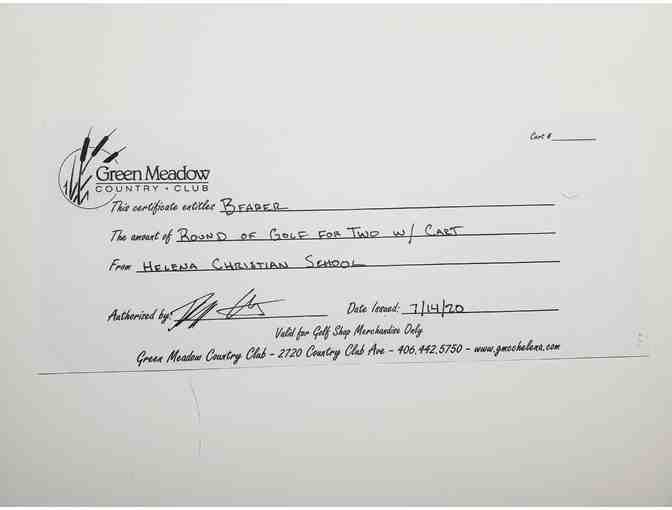 Cert #
Green Meadow
COUNTRY • CLUB
This certificate entitles BEARER
The amount of ROUND OF GOLF FOR TWO W/ CART
From HELENA CHRISTIAN SCHOOL
Authorised by:
Date Issued: 7/14/20
Valid for Golf Shop Merchandise Only
Green Meadow Country Club - 2720 Country Club Ave - 406.442.5750 - www.gmcchelena.com